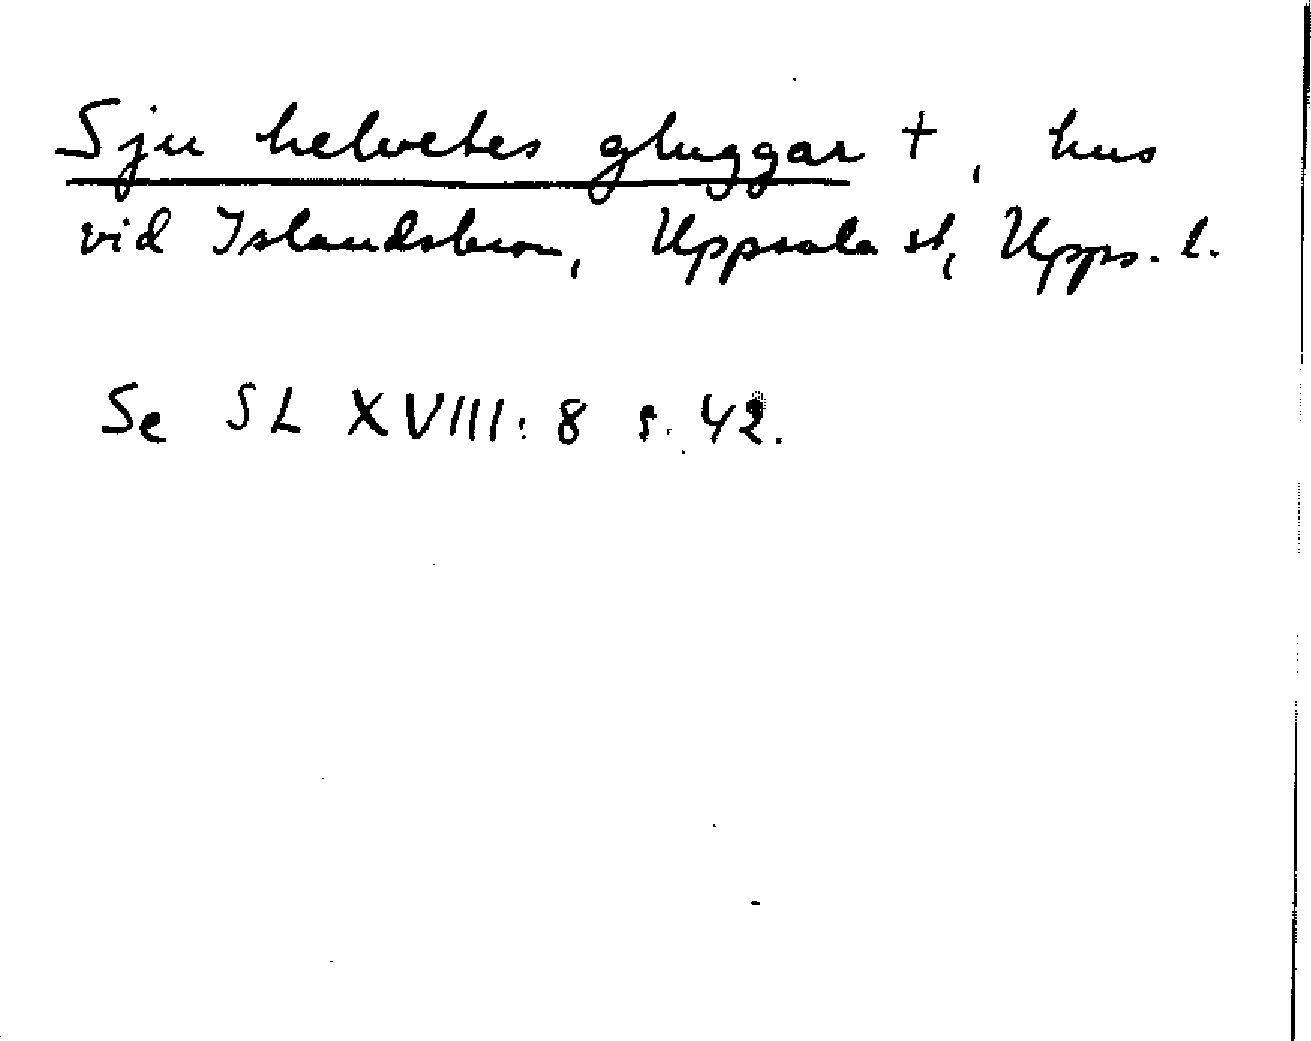 Sju helvetes gluggar +, hus
vid Islandsbron, Uppsala st, Upps. l.
Se SL XVIII: 8 s. 42.